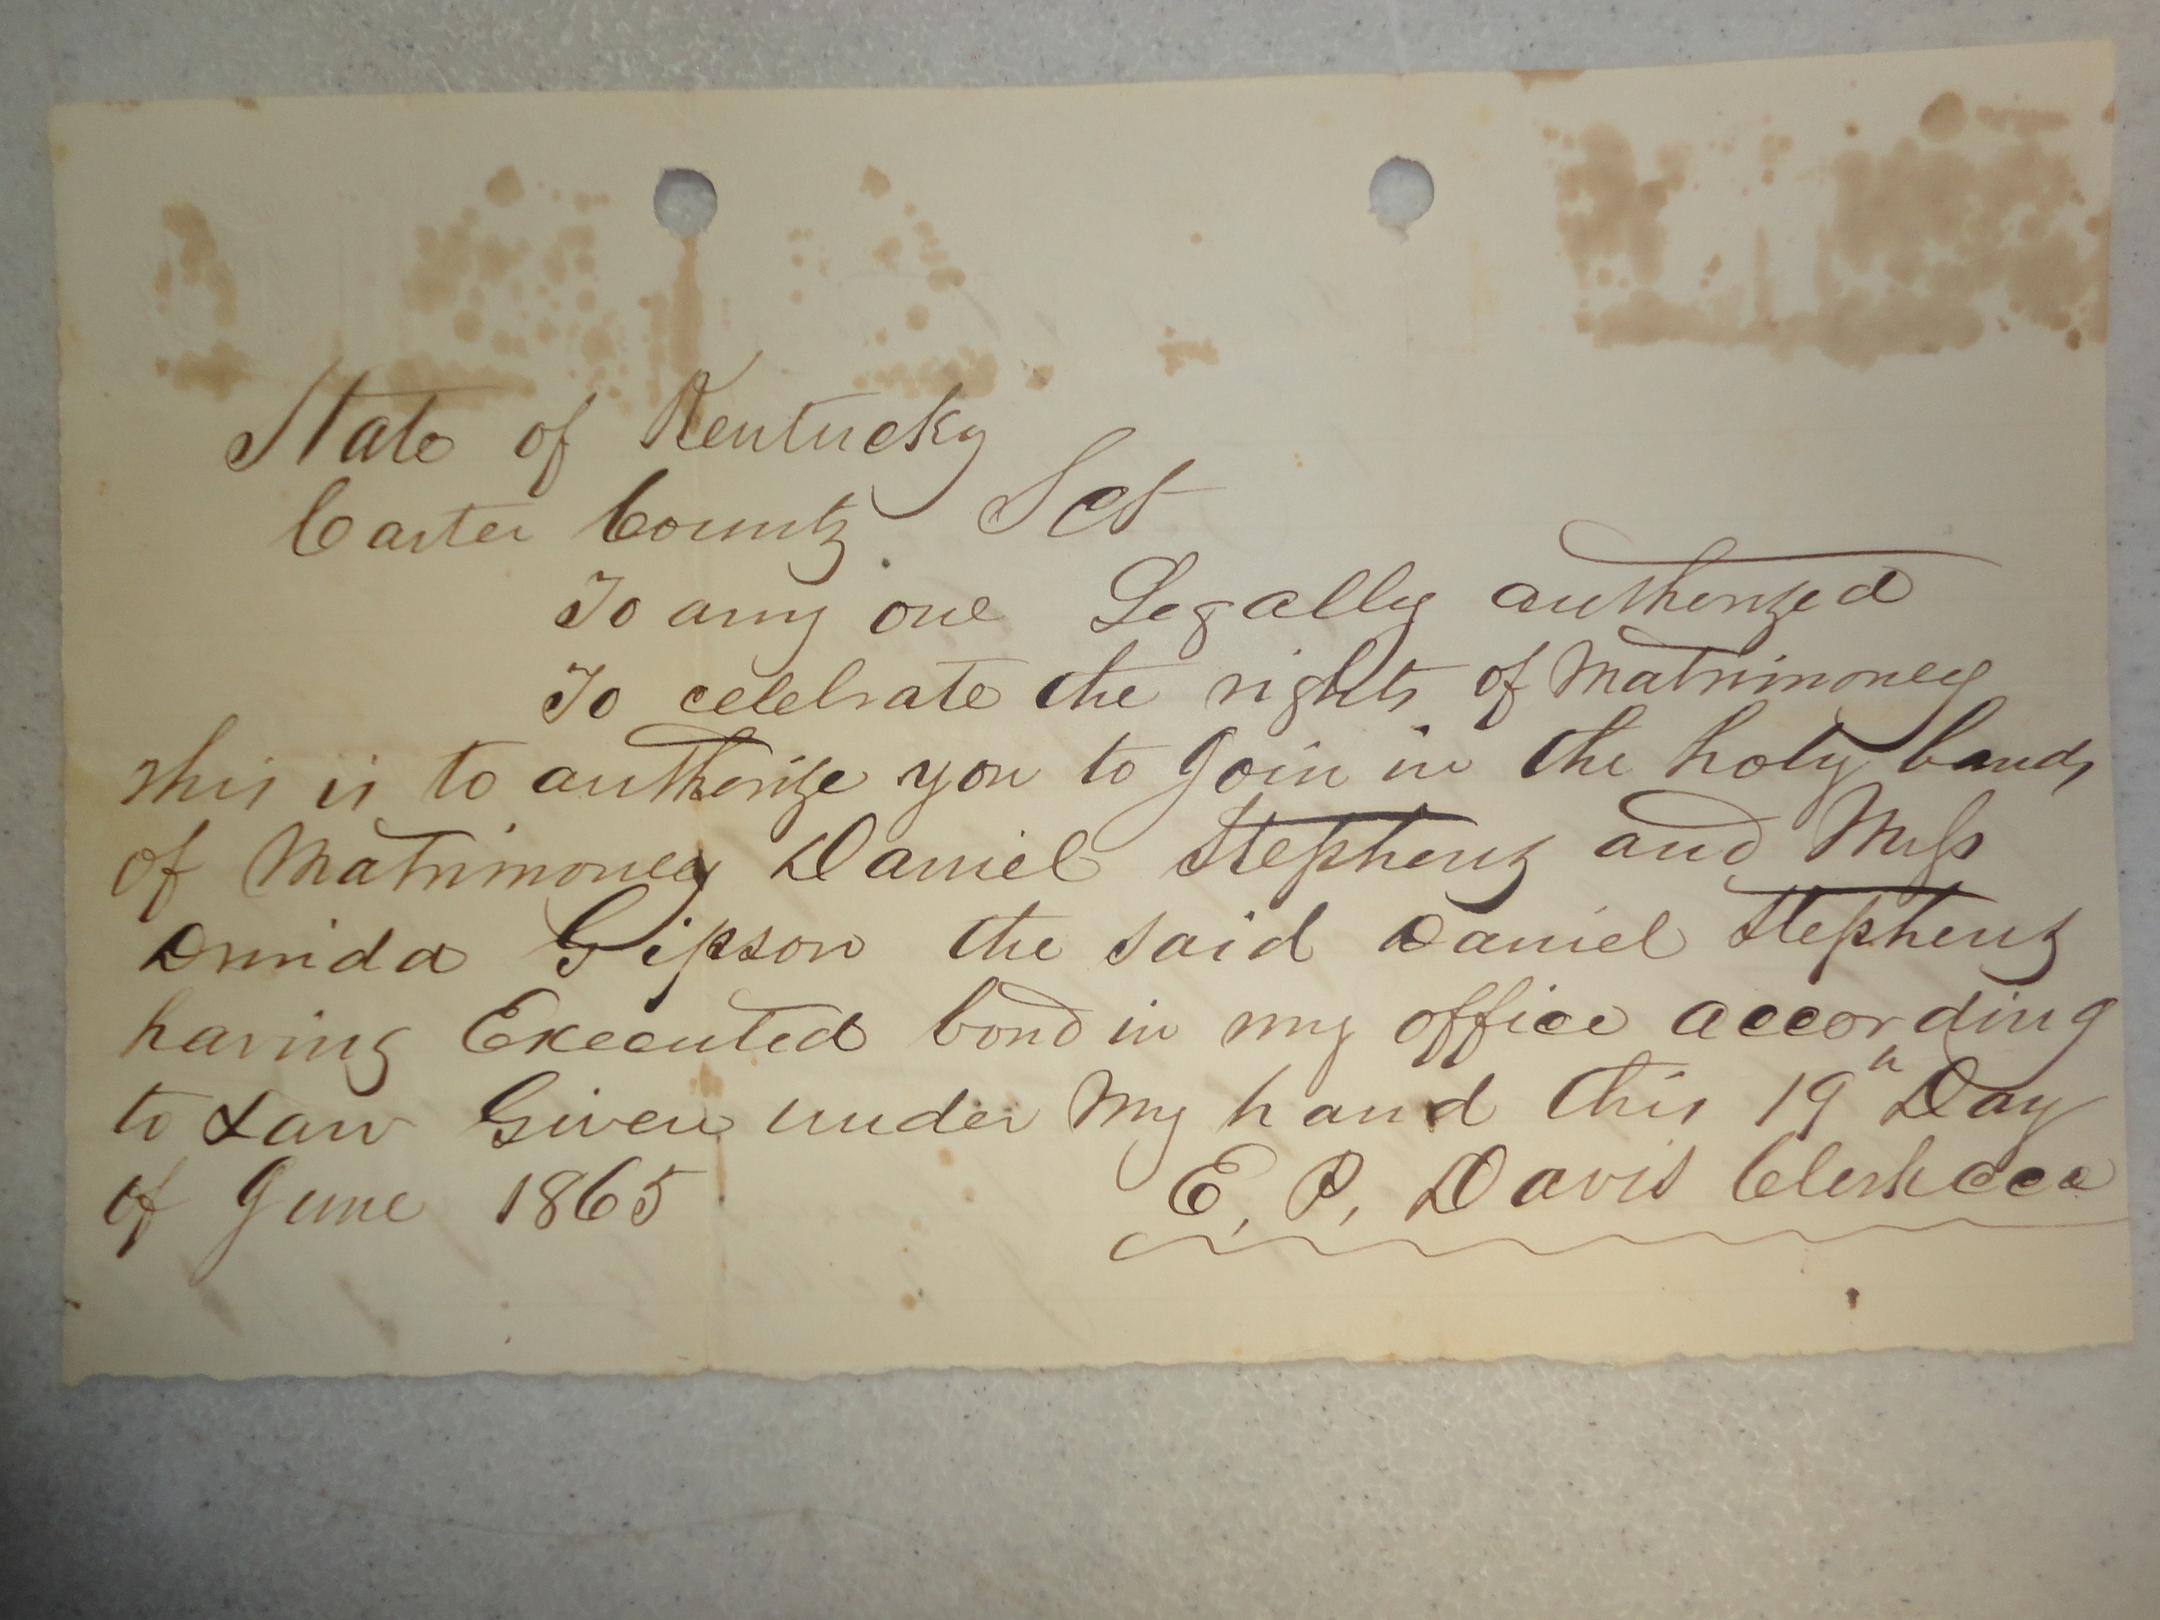 State of Kentucky
Carter County Sct
To any one Legally authorized
To celebrate the rights of Matrimoney
this is to authorize you to Join in the holy bands
of Matrimoney Daniel Stephens and Miss
Gipson the said Daniel Stephens
having Executed bond in my office according
to Law Given under My hand this 19th Day
of June 1865 E. P. Davis Clerk ccc